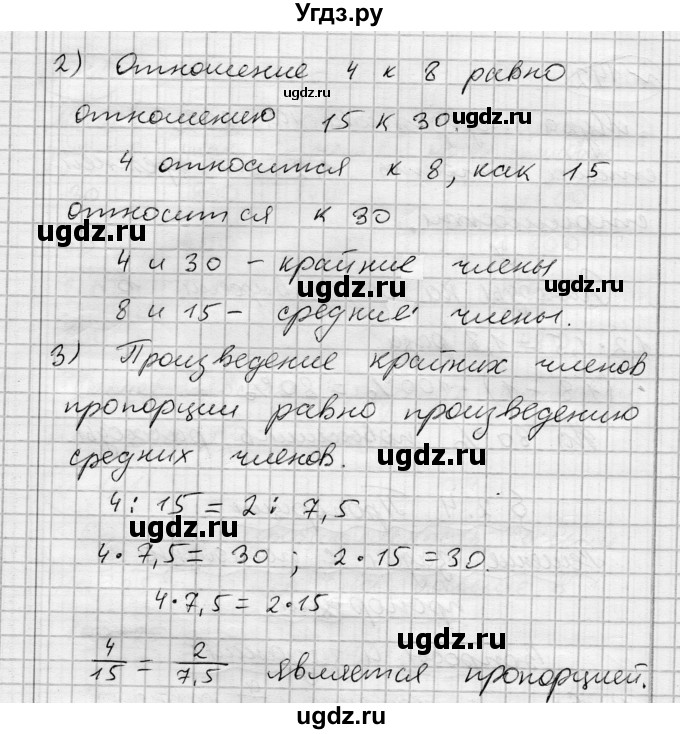 Угдз.ру
2) Отношение 4 к 8 равно
ugdz.ru
ugdz.ru
отношению 15 к 30.
4 относится к 8, как 15
относится к 30
ugdz.ru
4 и 30 - крайние члены
ugdz.ru
ugdz.ru
8 и 15 - средние члены.
3) Произведение крайних членов
пропорции равно произведению
средних членов.
ugdz.ru
4 : 15 = 2 : 7,5
ugdz.ru
4 · 7,5 = 30 ; 2 · 15 = 30.
4 · 7,5 = 2 · 15
4/15 = 2/7,5 является пропорцией.
ugdz.ru
ugdz.ru